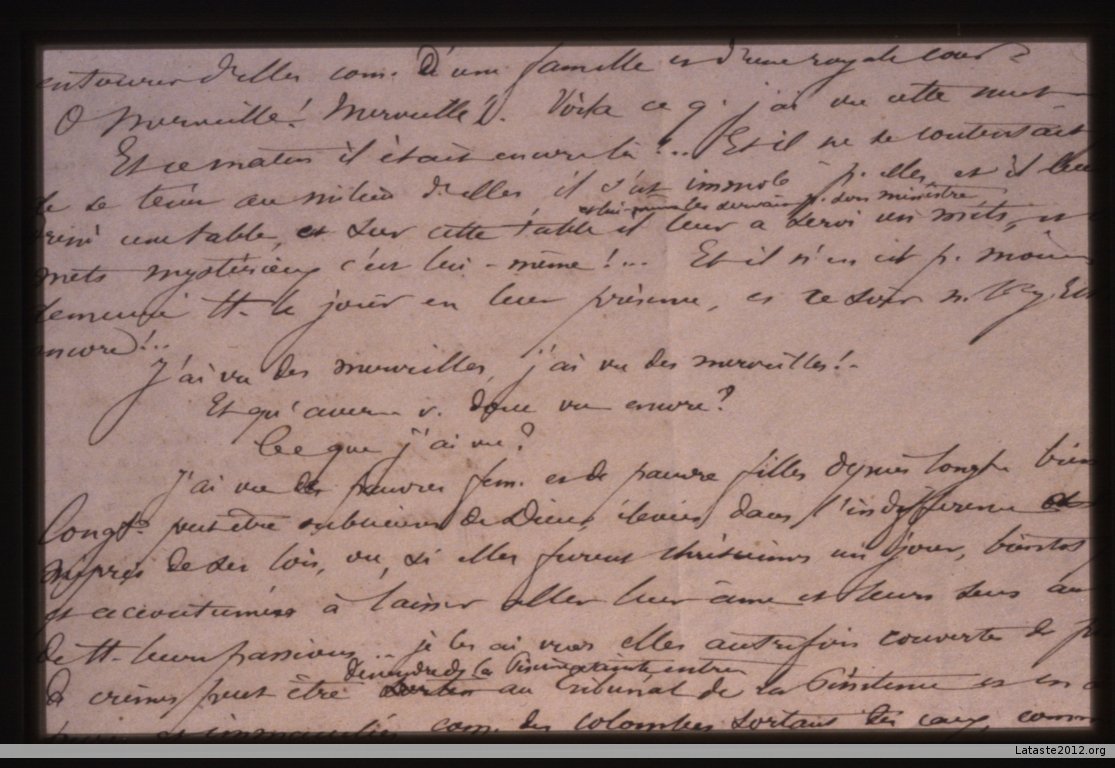 entourer d'elles com. d'une famille et d'une royale cour?
O Merveille! Merveille!. Voila ce q. j'ai vu cette nuit
Et ce matin il était encore là!... Et il ne se contentait
de se tenir au milieu d'elles il s'est immolé p. elles, et il leur
servir p. son ministre
une table, et sur cette table il leur a servi un mets, et
mets mystérieux c'est lui-même!... Et il n'en est p. moins
demeuré tt. le jour en leur présence, et ce soir n. l'y
encore!..
J'ai vu des merveilles, j'ai vu des merveilles!..
Et qu'avez v. donc vu encore?
Ce que j'ai vu?
J'ai vu des pauvres fem. et de pauvre filles depuis longtps bien
longtps peut être oublieuses de Dieu, élevées dans l'indifférence
mépris de ses lois, ou, si elles furent chrétiennes un jour, bientôt
et accoutumées à laisser aller leur âme et leurs sens au
de tt. leurs passions... je les ai vues elles autrefois couvertes de
descendre de la entrer
de crimes peut être au Tribunal de la Pénitence et en
et immaculées com. des colombes sortant des eaux, comme
Lataste2012.org